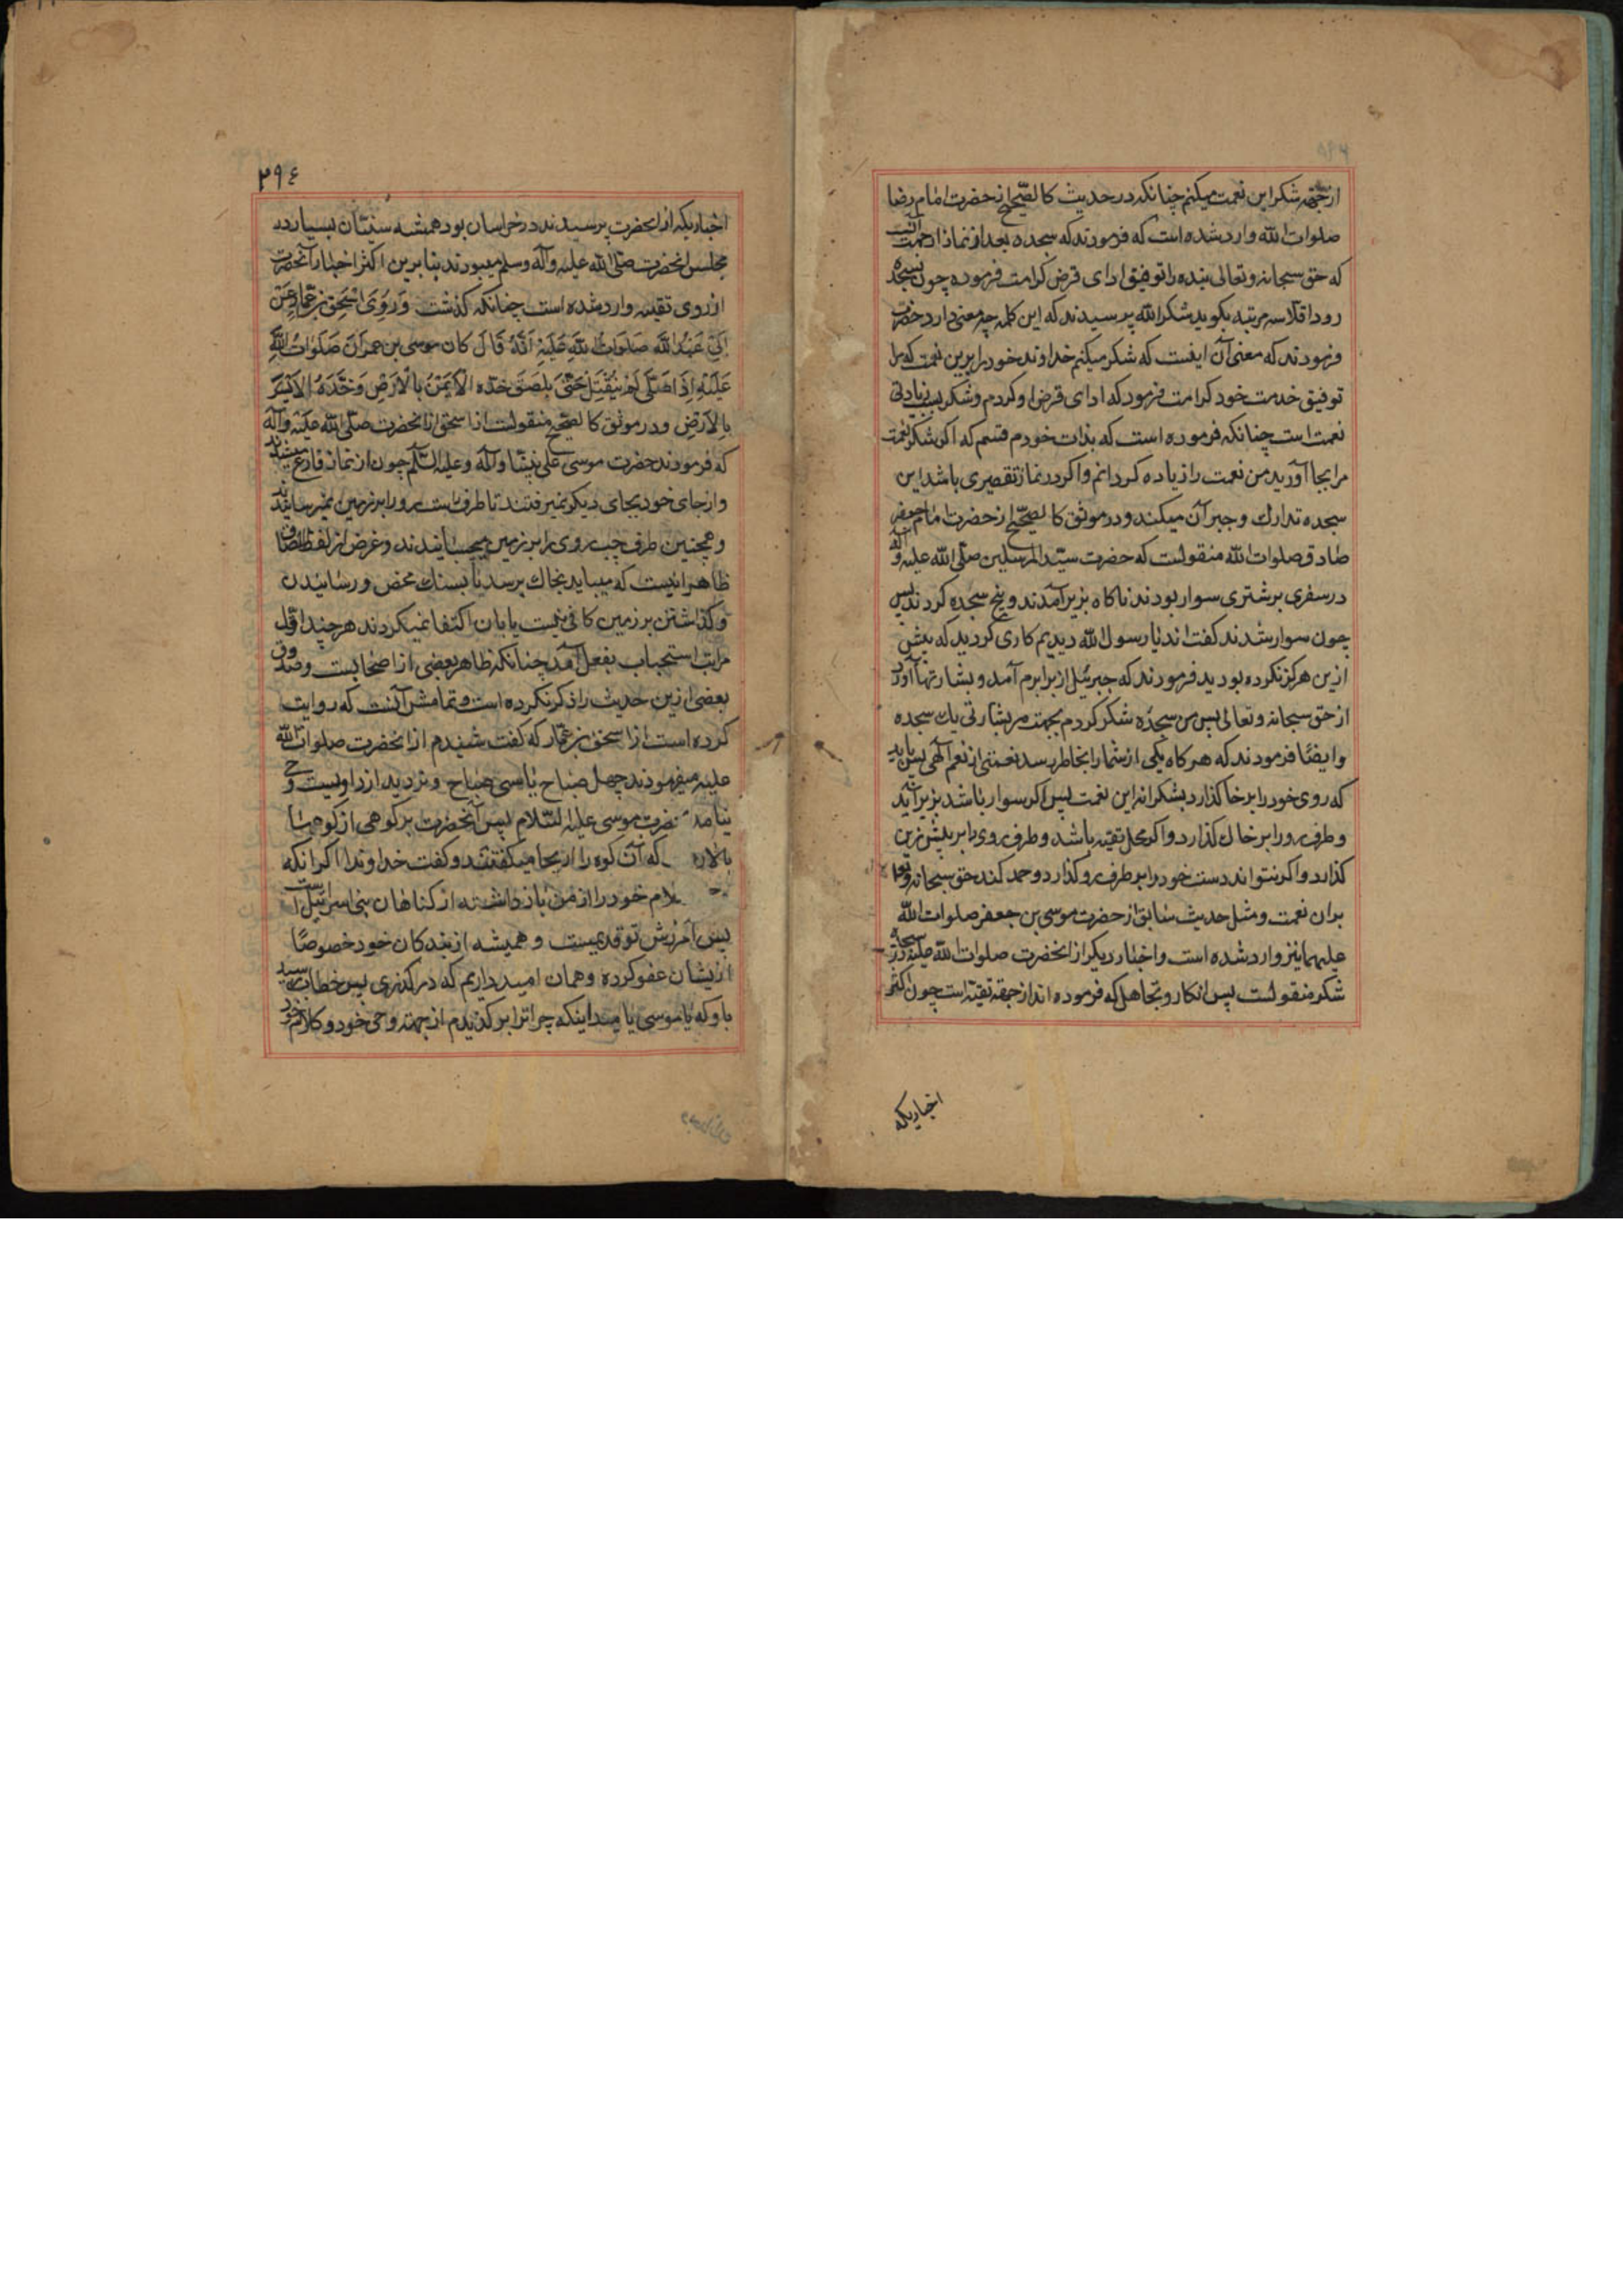 از جهة شکر این نعمت میکنم چنانکه در حدیث کالصحیح از حضرت امام رضا
صلوات الله وارد شده است که فرمودند که سجده بعد از نماز از جهت آنست
که حق سبحانه و تعالی بنده را توفیق ادای فرض کرامت فرموده چون بسجده
رود اقلا سه مرتبه بکوید شکرا لله پرسیدند که این کلمه چه معنی دارد حضرت
فرمودند که معنی آن اینست که شکر میکنم خداوند خود را برین نعمت که مرا
توفیق خدمت خود کرامت فرمود که ادای فرض او کردم و شکر سبب زیادتی
نعمت است چنانکه فرموده است که بذات خودم قسم که اکر شکر نعمت
مرا بجا آورید من نعمت را زیاده کردانم و اکر در نماز تقصیری باشد این
سجده تدارك و جبر آن میکند و در موثق کالصحیح از حضرت امام جعفر
صادق صلوات الله منقولست که حضرت سید المرسلین صلی الله علیه و آله
در سفری بر شتری سوار بودند ناکاه بزیر آمدند و پنج سجده کردند پس
چون سوار شدند کفتند یا رسول الله دیدیم کاری کردید که پیش
ازین هرکز نکرده بودید فرمودند که جبرئیل از برابرم آمد و بشارتها آورد
از حق سبحانه و تعالی پس من سجده شکر کردم بجهت هر بشارتی یك سجده
و ایضا فرمودند که هر کاه یکی از شما را بخاطر رسد نعمتی از نعم الهی پس باید
که روی خود را بر خاك کذارد بشکرانه این نعمت پس اکر سوار باشد بزیر آید
و طرف رو را بر خاك کذارد و اکر محل تقیه باشد و طرف روی را بر پیش زین
کذارد و اکر نتواند دست خود را بر طرف رو کذارد و حمد کند حق سبحانه و تعالی
بران نعمت و مثل حدیث سابق از حضرت موسی بن جعفر صلوات الله
علیهما نیز وارد شده است و اخبار دیکر از انحضرت صلوات الله علیه در سجده
شکر منقولست پس انکار و تجاهل که فرموده اند از جهة تقیه است چون اکثر
اخباریکه
۲۹٤
اخباریکه از انحضرت پرسیدند در خراسان بود همیشه سنیان بسیار در
مجلس انحضرت صلی الله علیه و آله و سلم میبودند بنا برین اکثر اخبار آنحضرت
از روی تقیه وارد شده است چنانکه کذشت وَرَوَی اِسْحٰق بْن عَمّار عَنْ
اَبی عَبْدِ اللهِ صَلَوَاتُ اللهِ عَلَیْهِ اَنَّهُ قَالَ کَانَ موسی بن عمران صَلَوَاتُ اللهِ
عَلَیْهِ اِذَا صَلّی لَمْ یَنْفَتِلْ حَتّی یُلْصِقَ خَدَّه الْاَیْمَنَ بِالْاَرْضِ وَخَدَّهُ الْاَیْسَرَ
بِالاَرْضِ و در موثق کالصحیح منقولست از اسحق از انحضرت صلی الله علیه و آله
که فرمودند حضرت موسی علی نبینا و آله و علیه السلم چون از نماز فارغ میشدند
و از جای خود بجای دیکر نمیرفتند تا طرف راست رو را بر زمین نمیرسانیدند
و همچنین طرف چپ روی را بر زمین میچسبانیدند و غرض از لفظ الصاق
ظاهرا اینست که میباید بخاك برسد نا بسنك محض و رسانیدن
و کذاشتن بر زمین کافی نیست یا بان اکتفا نمیکردند هر چند اقل
مراتب استحباب بفعل آمد چنانکه ظاهر بعضی از اصحابست و صدوق
بعضی ازین حدیث را ذکر نکرده است و تمامش آنست که روایت
کرده است از اسحق بن عمار که کفت شنیدم از انحضرت صلوات الله
علیه میفرمودند چهل صباح یا سی صباح و تردید از راویست وحی
نیامد حضرت موسی علیه السلام پس آنحضرت بر کوهی از کوهها
بالا که آن کوه را اریحا میکفتند و کفت خداوندا اکر انکه
خود را از من باز داشته از کناهان بنی اسرائیل است
پس آمرزش تو قدیمیست و همیشه از بندکان خود خصوصا
ازیشان عفو کرده و همان امید داریم که در کذری پس خطاب رسید
باو که یا موسی یا میدانیکه چرا ترا بر کزیدم از جهة وحی خود و کلام خود